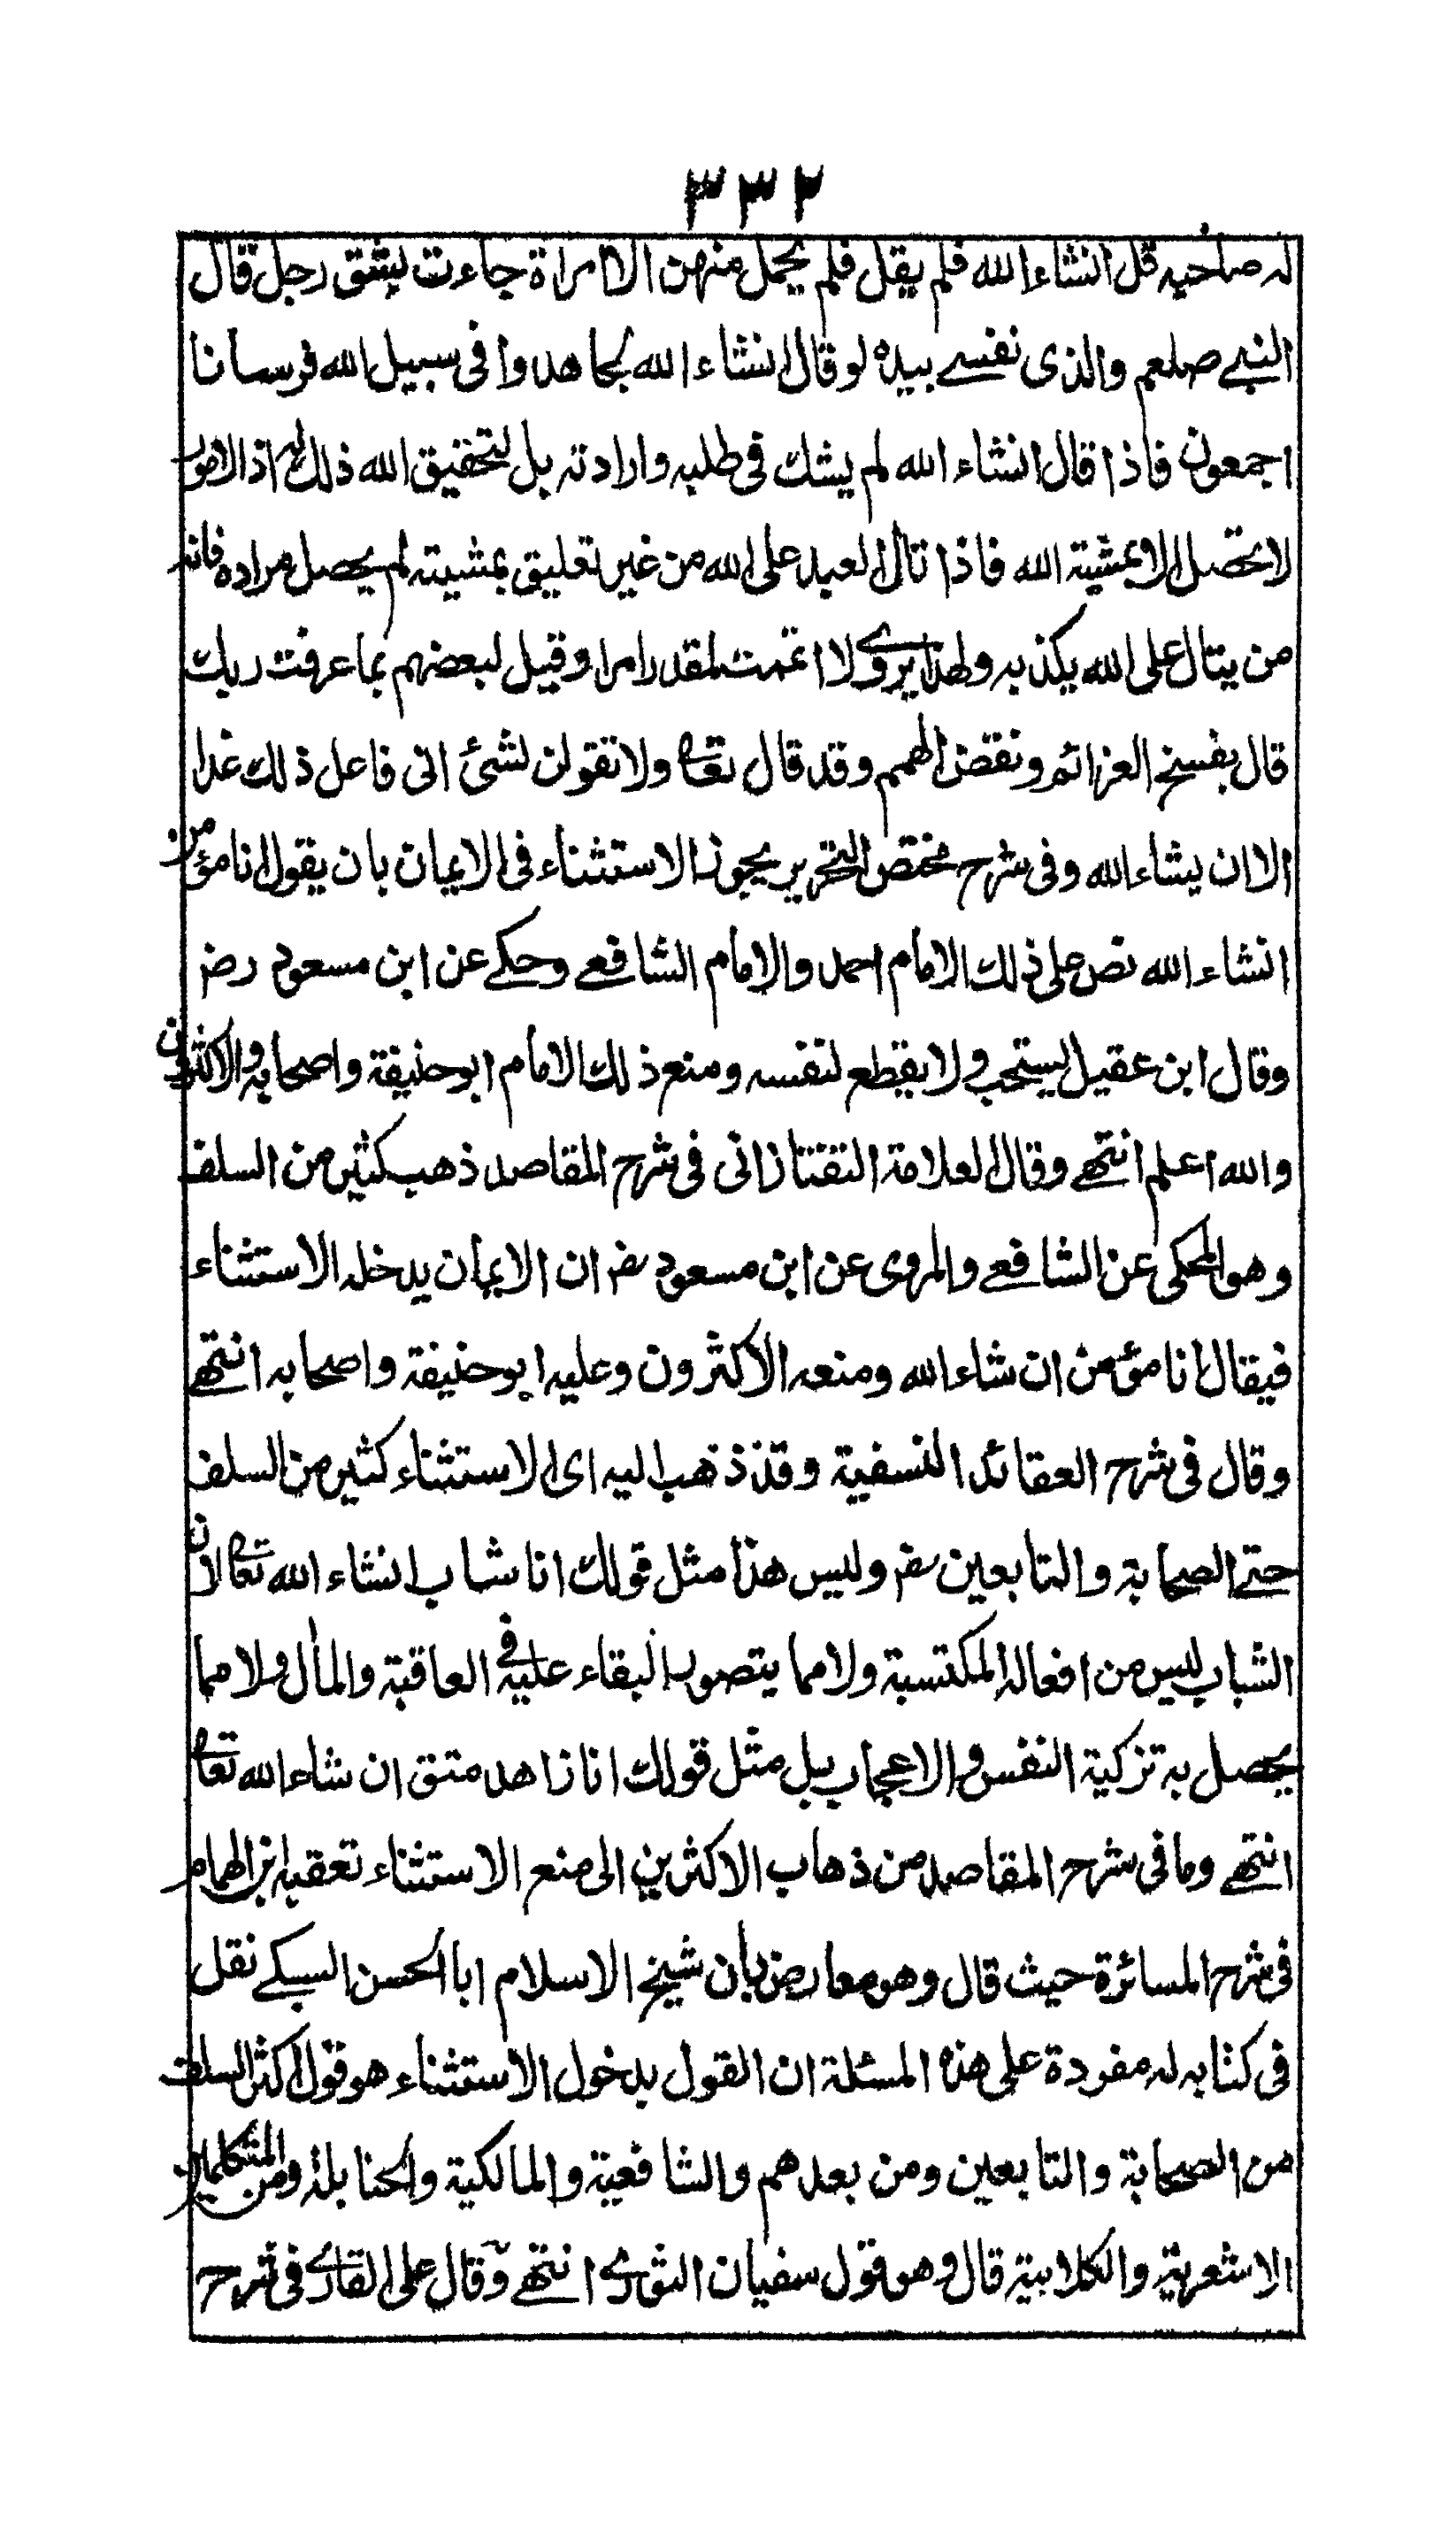 ٣٣٢
له صاحبه قل انشاء الله فلم يقل فلم يحمل منهن الا امراة جاءت بشق رجل قال
النبي صلعم والذى نفسے بيده لو قال انشاء الله لجاهدوا فى سبيل الله فرسانا
اجمعون فاذا قال انشاء الله لم يشك فى طلبه وارادته بل لتحقيق الله ذلك له اذ الامور
لا تحصل الا بمشية الله فاذا تالى العبد على الله من غير تعليق بمشيته لم يحصل مراده فانه
من يتال على الله يكذبه ولهذا يروے لا اتممت لمقدر امرا وقيل لبعضهم بما عرفت ربك
قال بفسخ العزائم ونقض الهمم وقد قال تعا ولا تقولن لشئ انى فاعل ذلك غدا
الا ان يشاء الله وفى شرح مختصر التحرير يجوز الاستثناء فى الايمان بان يقول انا مؤمن
انشاء الله نص على ذلك الامام احمد والامام الشافعے وحكے عن ابن مسعود رضـ
وقال ابن عقيل يستحب ولا يقطع لنفسه ومنع ذلك الامام ابو حنيفة واصحابه والاكثرون
والله اعلم انتهے وقال العلامة التفتازانى فى شرح المقاصد ذهب كثير من السلف
وهو المحكى عن الشافعے والمروى عن ابن مسعود رضـ ان الايمان يدخله الاستثناء
فيقال انا مؤمن ان شاء الله ومنعه الاكثرون وعليه ابو حنيفة واصحابه انتهے
وقال فى شرح العقائد النسفية وقد ذهب اليه اى الاستثناء كثير من السلف
حتے الصحابة والتابعين رضـ وليس هذا مثل قولك انا شاب انشاء الله تعا لان
الشباب ليس من افعاله المكتسبة ولا مما يتصور البقاء عليه فى العاقبة والمأل ولا مما
يحصل به تزكية النفس والاعجاب بل مثل قولك انا زاهد متق ان شاء الله تعا
انتهے وما فى شرح المقاصد من ذهاب الاكثرين الى منع الاستثناء تعقبه ابن الهمام
فى شرح المسائرة حيث قال وهو معارض بأن شيخ الاسلام ابا الحسن السبكے نقل
فى كتابه له مفردة على هذه المسئلة ان القول بدخول الاستثناء هو قول اكثر السلف
من الصحابة والتابعين ومن بعدهم والشافعية والمالكية والحنابلة ومن المتكلمين
الاشعرية والكلابية قال وهو قول سفيان الثورے انتهے وقال على القارے فى شرح